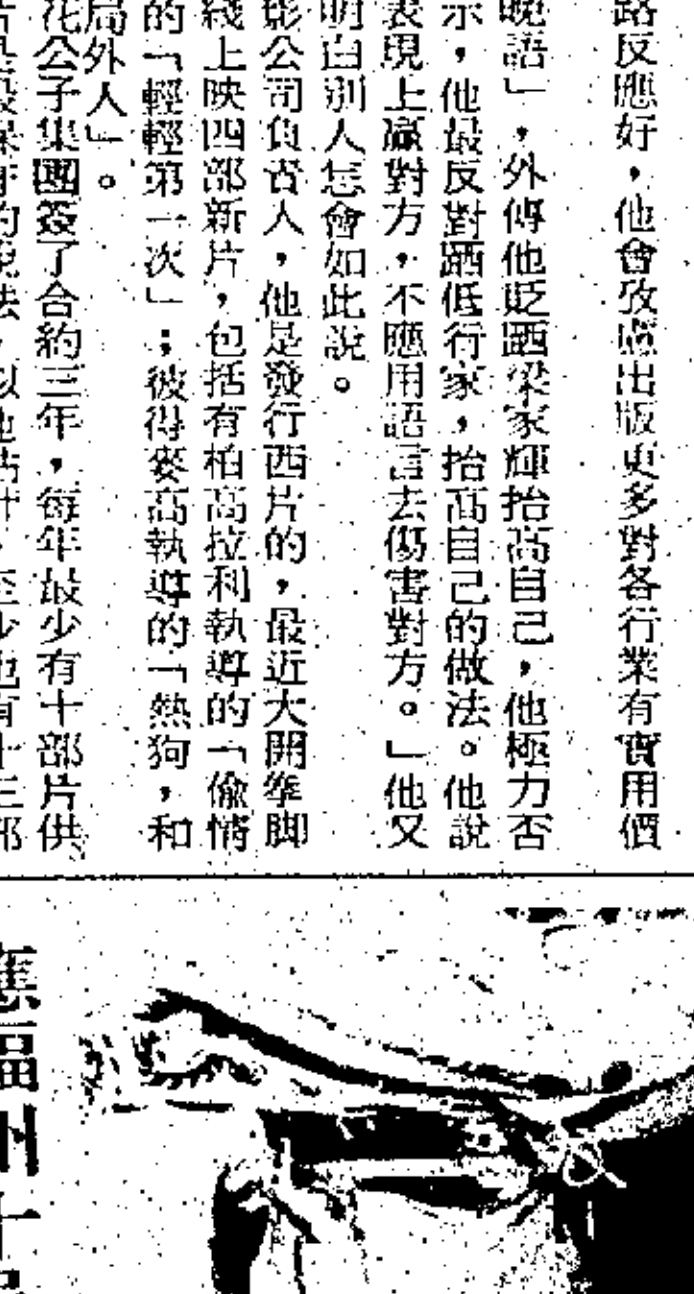 路反應好，他會攷慮出版更多對各行業有實用價
晚語」，外傳他貶踎梁家輝抬高自己，他極力否
示，他最反對踎低行家，抬高自己的做法。他說
表現上贏對方，不應用語言去傷害對方。」他又
明白別人怎會如此說。
影公司負責人，他是發行西片的，最近大開拳脚
綫上映四部新片，包括有柏高拉利執導的「偸情
的「輕輕第一次」；彼得麥高執導的「熱狗，和
局外人」。
花公子集團簽了合約三年，每年最少有十部片供
至少也有十三部
應福州十